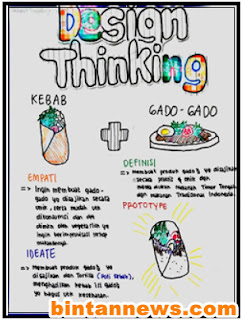 Design
Thinking
KEBAB
GADO-GADO
EMPATI
=> Ingin membuat gado-
gado yg disajikan secara
unik, serta mudah utk
dikonsumsi dan dpt
diminati oleh vegetarian yg
ingin berimprovisasi terhdp
makanannya.
DEFINISI
=> Membuat produk gado2 yg disajikan
secara praktis & unik dan
memadukan makanan Timur Tengah
dan makanan Tradisional Indonesia.
PROTOTYPE
IDEATE
=> Membuat gado2 yg di
sajikan dan Tortila (Roti kebab),
menghasilkan kebab isi gado2
yg bagus utk kesehatan.
bintannews.com